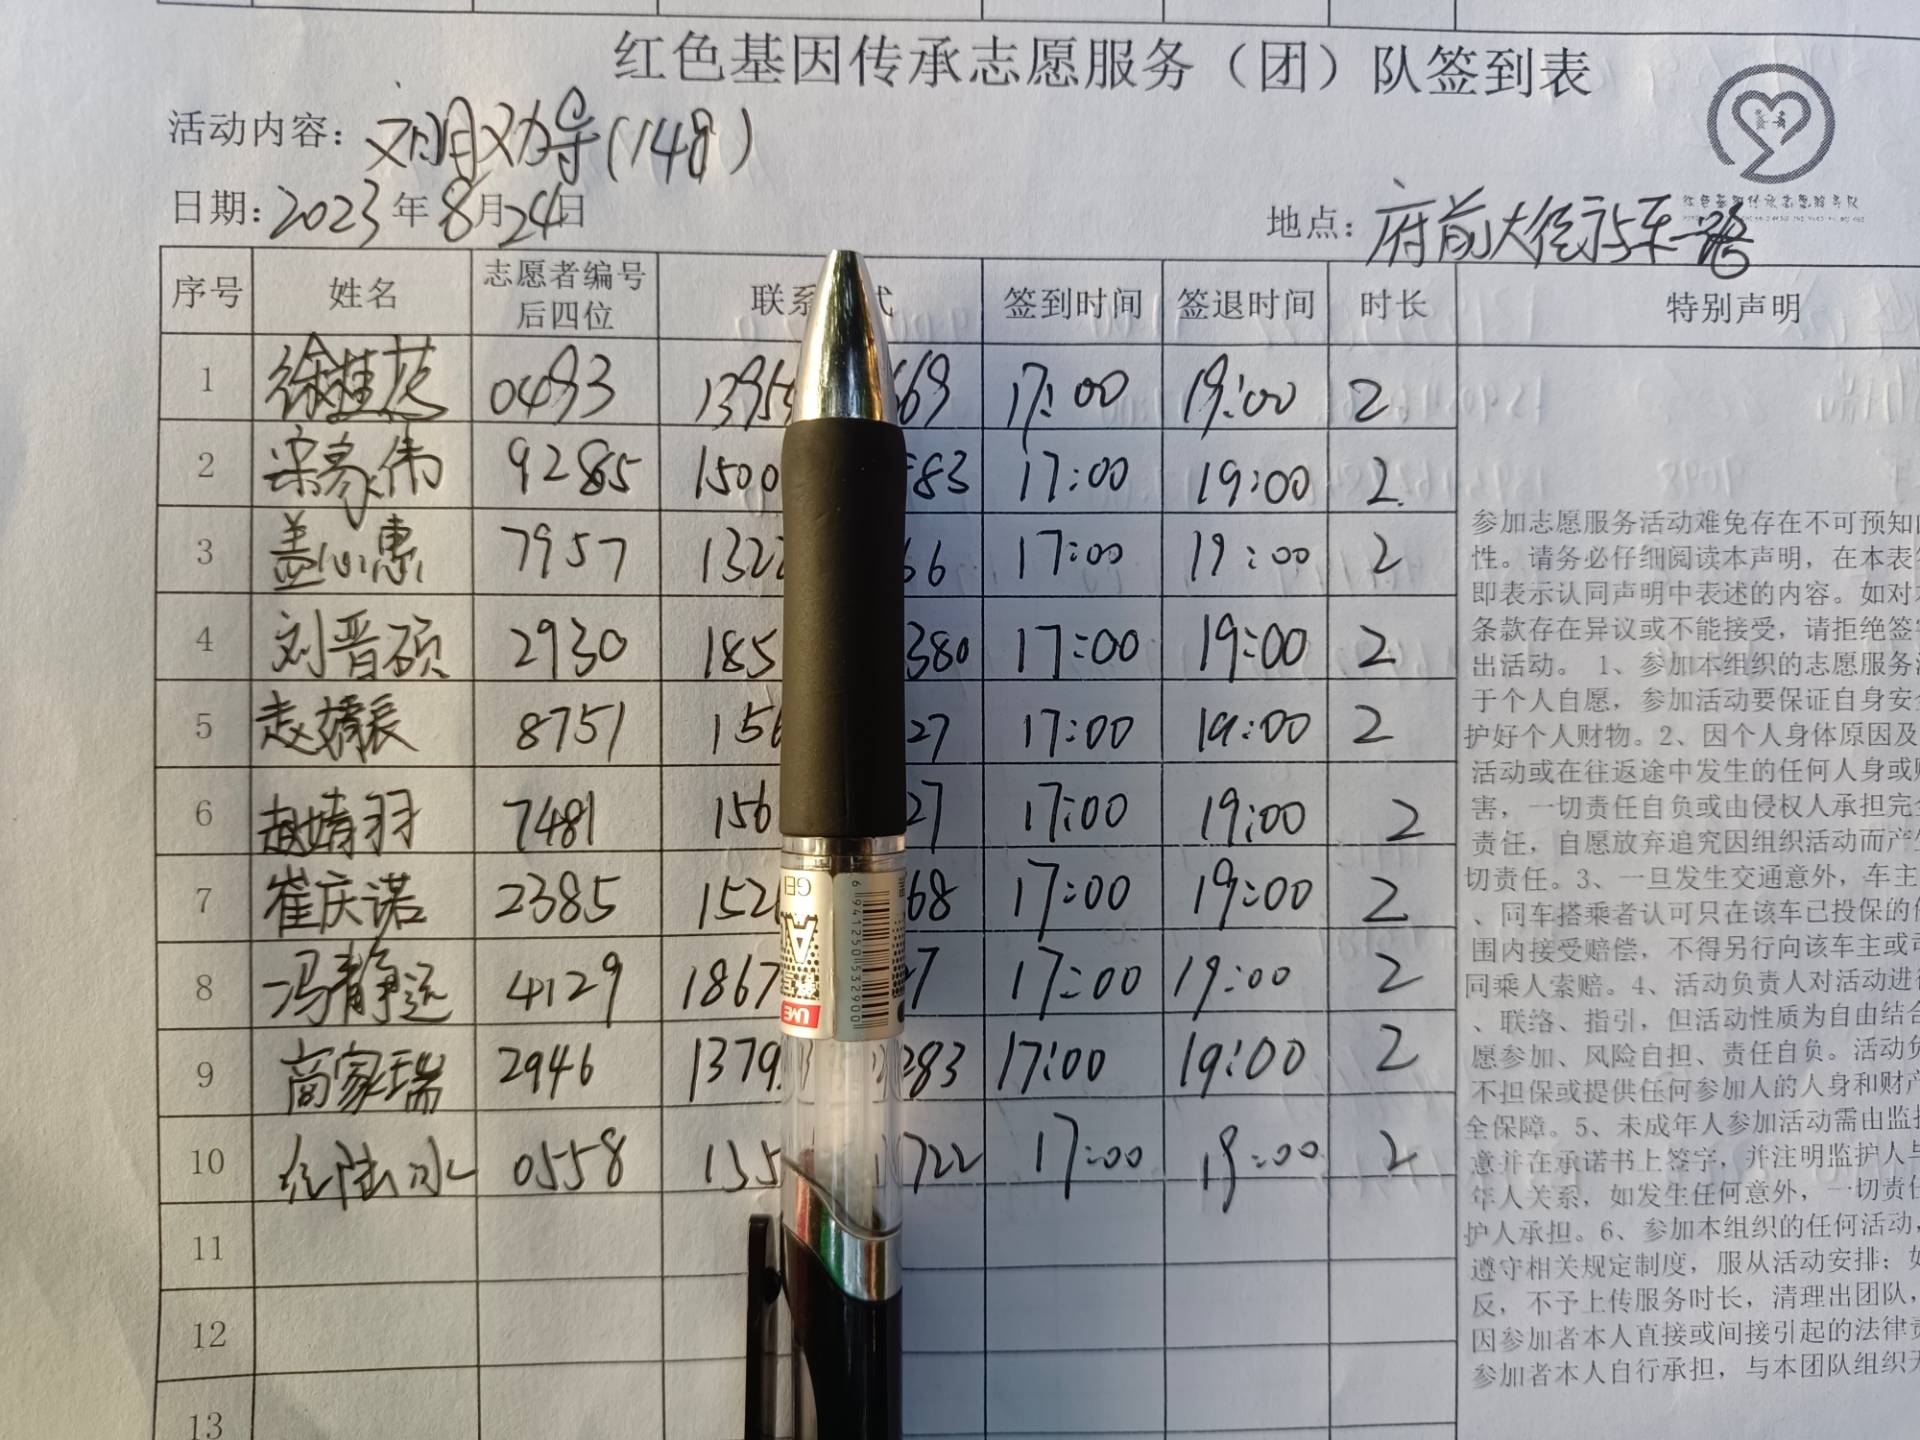 红色基因传承志愿服务（团）队签到表
活动内容：文明劝导(148)
日期：2023年8月24日
地点：府前大街
序号 姓名 志愿者编号后四位 联系 式 签到时间 签退时间 时长 特别声明
1 徐桂花 0493 1395 669 17:00 19:00 2
2 宋家伟 9285 1500 83 17:00 19:00 2
3 盖心惠 7957 132 66 17:00 19:00 2
4 刘晋硕 2930 185 380 17:00 19:00 2
5 8751 156 27 17:00 19:00 2
6 赵婧羽 7481 156 27 17:00 19:00 2
7 崔庆诺 2385 152 68 17:00 19:00 2
8 冯静远 4129 1867 7 17:00 19:00 2
9 商家瑞 2946 1379 283 17:00 19:00 2
10 0558 135 722 17:00 19:00 2
11
12
13
参加志愿服务活动难免存在不可预知
性。请务必仔细阅读本声明，在本表
即表示认同声明中表述的内容。如对
条款存在异议或不能接受，请拒绝签
出活动。 1、参加本组织的志愿服务
于个人自愿，参加活动要保证自身安
护好个人财物。2、因个人身体原因及
活动或在往返途中发生的任何人身或
害，一切责任自负或由侵权人承担完
责任，自愿放弃追究因组织活动而产
切责任。3、一旦发生交通意外，车主
、同车搭乘者认可只在该车已投保的
围内接受赔偿，不得另行向该车主或
同乘人索赔。4、活动负责人对活动进
、联络、指引，但活动性质为自由结合
愿参加、风险自担、责任自负。活动
不担保或提供任何参加人的人身和财产
全保障。5、未成年人参加活动需由监
意并在承诺书上签字，并注明监护人与
年人关系，如发生任何意外，一切责任
护人承担。6、参加本组织的任何活动，
遵守相关规定制度，服从活动安排；如
反，不予上传服务时长，清理出团队，
因参加者本人直接或间接引起的法律
参加者本人自行承担，与本团队组织
6 941250 532900